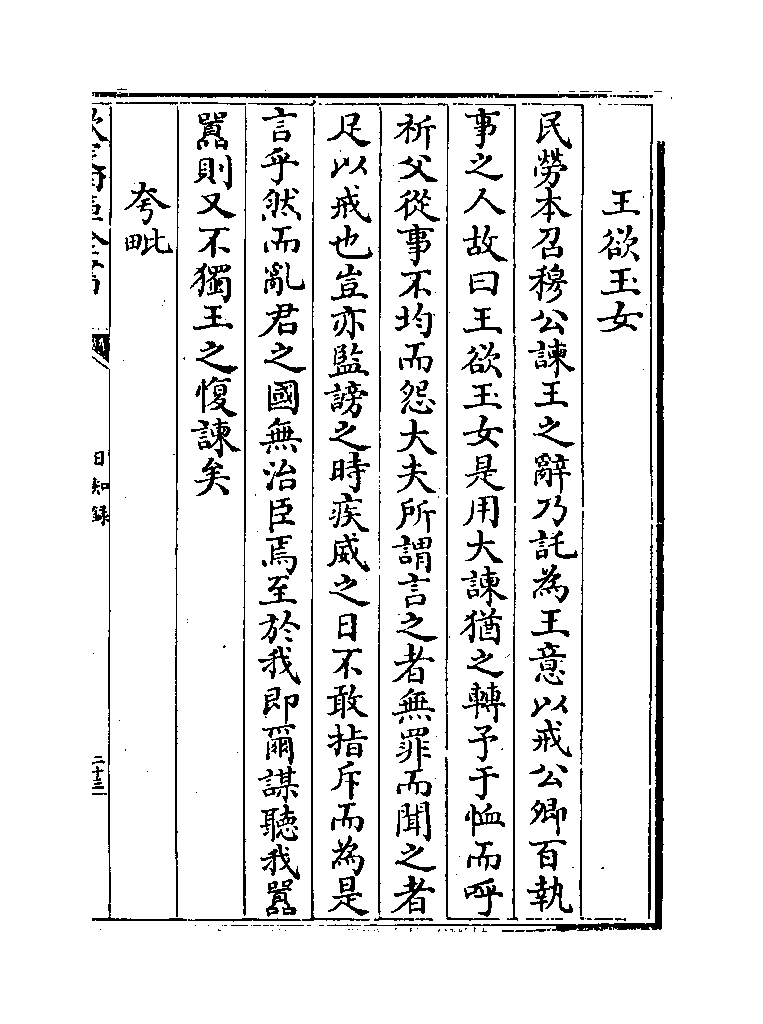 王欲玉女
民勞本召穆公諫王之辭乃託為王意以戒公卿百執
事之人故曰王欲玉女是用大諫猶之轉予于恤而呼
祈父從事不均而怨大夫所謂言之者無罪而聞之者
足以戒也豈亦監謗之時疾威之日不敢指斥而為是
言乎然而亂君之國無治臣焉至於我即爾謀聽我囂
囂則又不獨王之愎諫矣
夸毗
日知錄
二十三